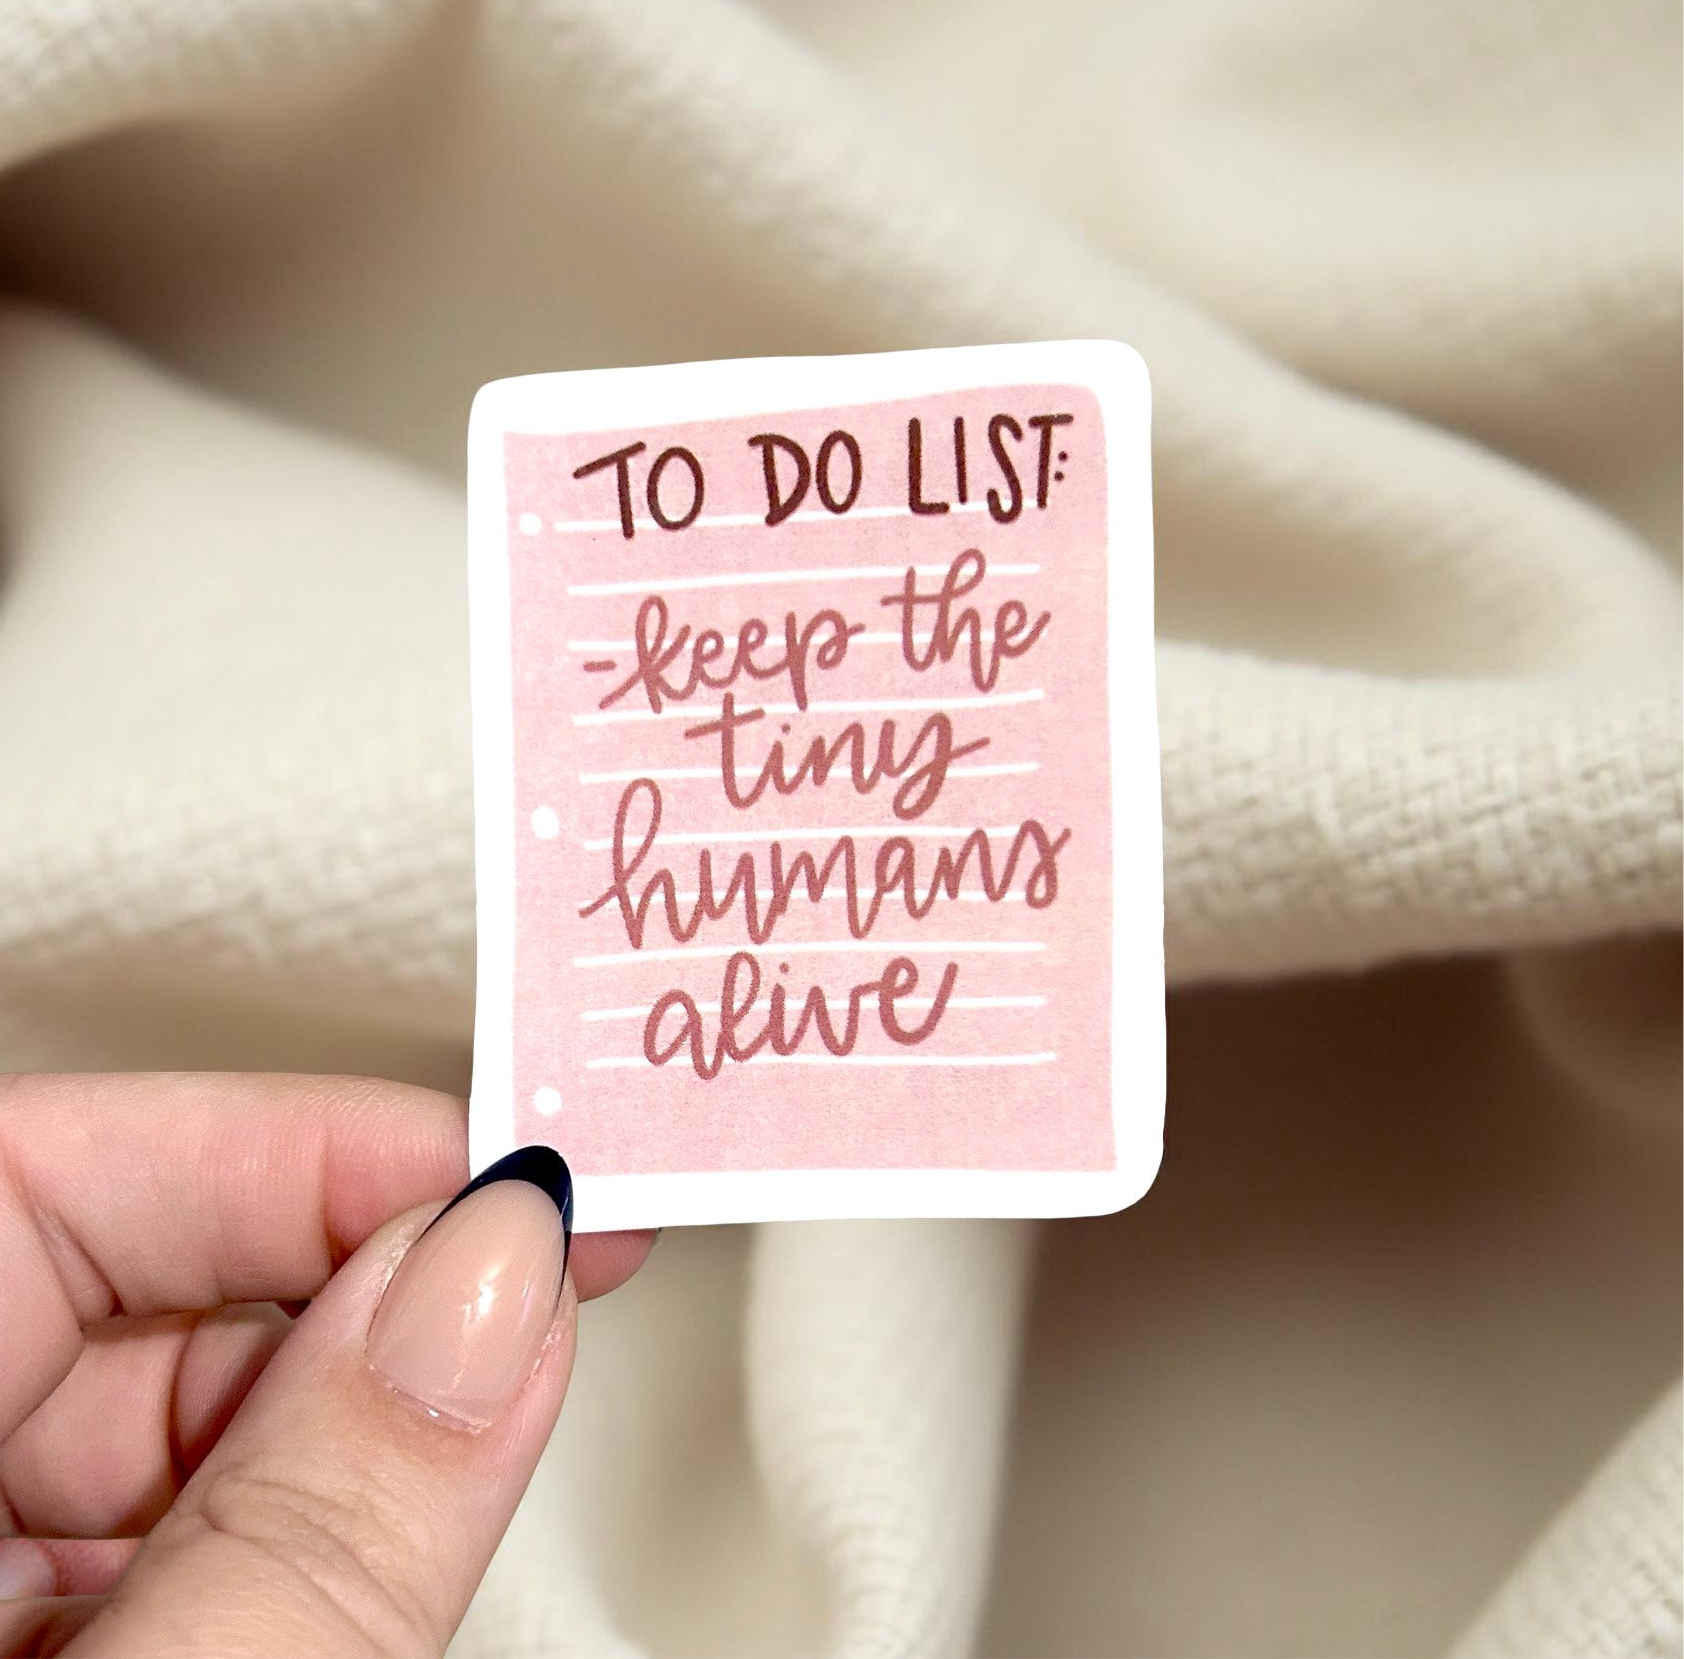 TO DO LIST:
-keep the
tiny
humans
alive